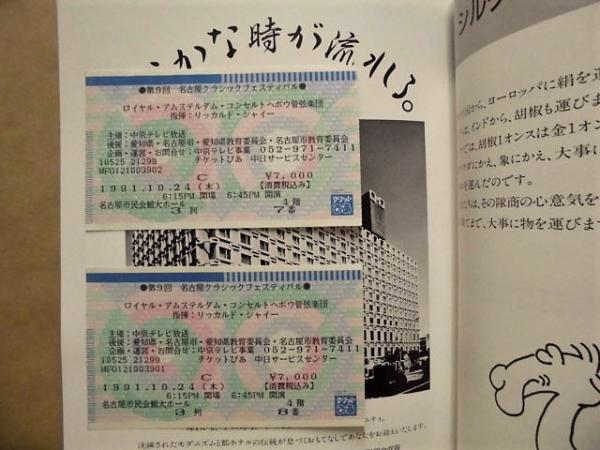 かな時が流れる。
●第9回 名古屋クラシックフェスティバル●
ロイヤル・アムステルダム・コンセルトヘボウ管弦楽団
指揮:リッカルド・シャイー
主催:中京テレビ放送
後援:愛知県・名古屋市・愛知県教育委員会・名古屋市教育委員会
企画・運営・お問合せ:中京テレビ事業 052-971-7411
10525 21299 チケットぴあ 中日サービスセンター
MP0121003902
C ¥7,000
1991.10.24(木) 【消費税込み】
6:15PM 開場 6:45PM 開演
名古屋市民会館大ホール 4階
3列 7番
●第9回 名古屋クラシックフェスティバル●
ロイヤル・アムステルダム・コンセルトヘボウ管弦楽団
指揮:リッカルド・シャイー
主催:中京テレビ放送
後援:愛知県・名古屋市・愛知県教育委員会・名古屋市教育委員会
企画・運営・お問合せ:中京テレビ事業 052-971-7411
10525 21299 チケットぴあ 中日サービスセンター
MP0121003901
C ¥7,000
1991.10.24(木) 【消費税込み】
6:15PM 開場 6:45PM 開演
名古屋市民会館大ホール 4階
3列 8番
洗練されたモダニズムと都ホテルの伝統が息づくおもてなしであなたをお迎えいたします。
シル
から、ヨーロッパに絹を運
インドから、胡椒も運びま
は、胡椒1オンスは金1オン
にかえ、象にかえ、大事に
を運んだのです。
ちは、その隊商の心意気を
まで、大事に物を運びま